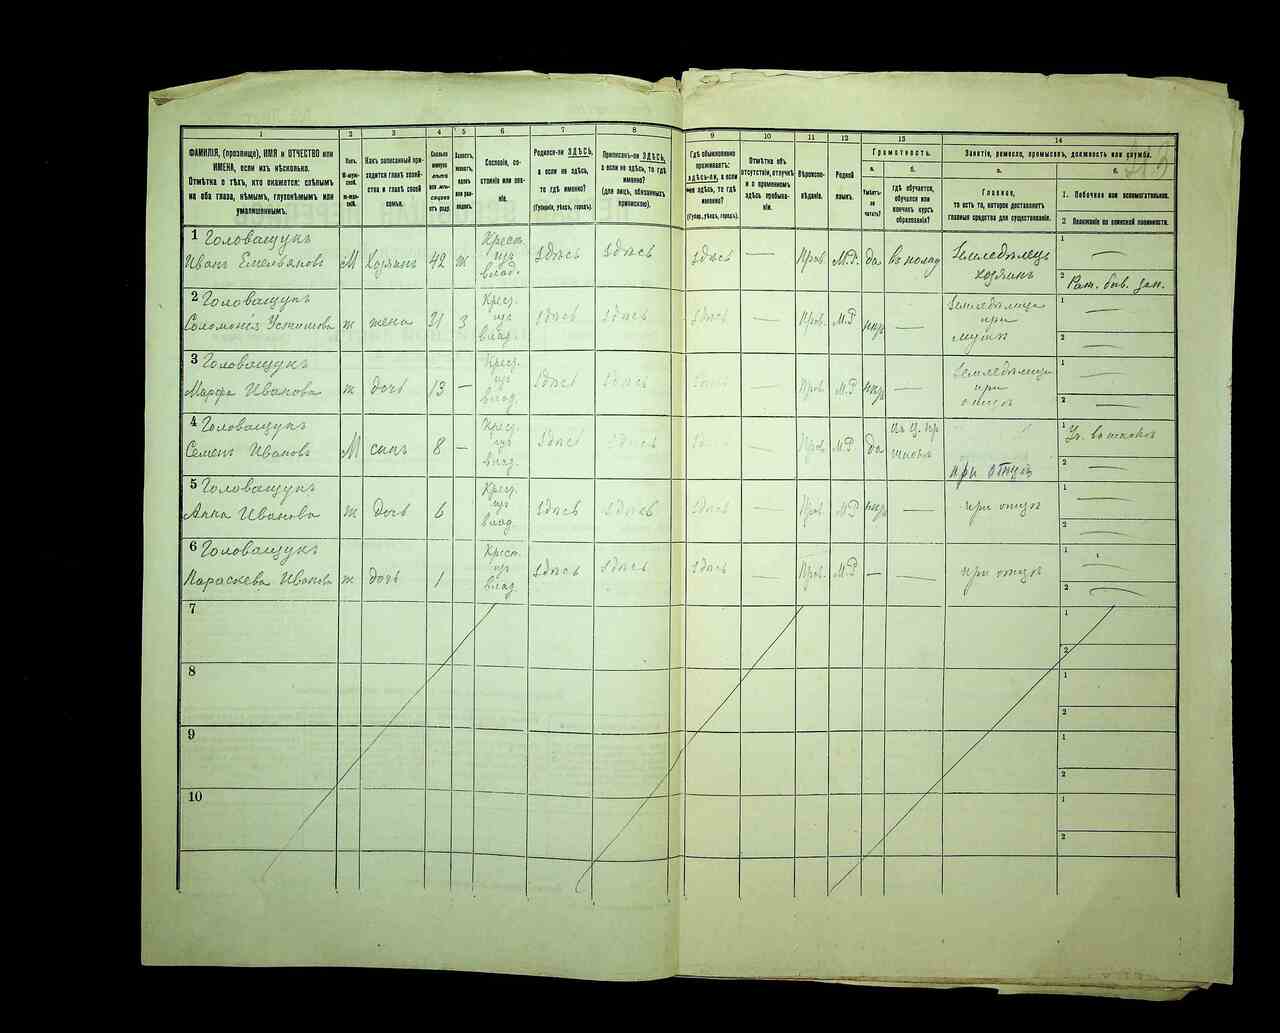 1 2 3 4 5 6 7 8 9 10 11 12 13 14
ФАМИЛІЯ, (прозвище), ИМЯ и ОТЧЕСТВО или
ИМЕНА, если ихъ нѣсколько.
Отмѣтка о тѣхъ, кто окажется: слѣпымъ
на оба глаза, нѣмымъ, глухонѣмымъ или
умалишеннымъ.
Полъ.
М-мужской.
Ж-женскій.
Какъ записанный приходится главѣ хозяйства и главѣ своей
семьи.
Сколько
минуло
лѣтъ
или мѣсяцевъ
отъ роду.
Холостъ,
женатъ,
вдовъ
или разведенъ.
Сословіе, состояніе или званіе.
Родился-ли ЗДѢСЬ,
а если не здѣсь,
то гдѣ
именно?
(Губернія, уѣздъ, городъ).
Приписанъ-ли ЗДѢСЬ,
а если не здѣсь, то гдѣ
именно?
(для лицъ, обязанныхъ
припискою).
Гдѣ обыкновенно
проживаетъ:
здѣсь-ли, а если
не здѣсь, то гдѣ
именно?
(Губер., уѣздъ, городъ).
Отмѣтка объ
отсутствіи, отлучкѣ
и о временномъ
здѣсь пребываніи.
Вѣроисповѣданіе.
Родной
языкъ.
Грамотность.
а. б.
Умѣетъ-ли
читать?
гдѣ обучается,
обучался или
кончилъ курсъ
образованія?
Занятіе, ремесло, промыселъ, должность или служба.
а. б.
Главное,
то есть то, которое доставляетъ
главныя средства для существованія.
1. Побочное или вспомогательное.
2 Положеніе по воинской повинности.
1 Головащукъ
Иванъ Емельяновъ М Хозяинъ 42 ж Крест. изъ влад. здѣсь здѣсь здѣсь — Прав. М.Р. да Земледѣлецъ хозяинъ 1 —
2 Рат.
2 Головащукъ
Соломонія ж жена 31 з Крест. изъ влад. здѣсь здѣсь здѣсь — Прав. М.Р нѣтъ — при мужѣ 1 —
2 —
3 Головащукъ
Марфа Иванова ж дочь 13 — Крест. изъ влад. здѣсь здѣсь здѣсь — Прав. М.Р нѣтъ — при отцѣ 1 —
2 —
4 Головащукъ
Семенъ Ивановъ М сынъ 8 — Крест. изъ влад. здѣсь здѣсь здѣсь — Прав. М.Р. да въ ц. пр школѣ при отцѣ 1 Уч. въ школѣ
2 —
5 Головащукъ
Анна Иванова ж дочь 6 Крест. изъ влад. здѣсь здѣсь здѣсь — Прав. М.Р нѣтъ — при отцѣ 1 —
2 —
6 Головащукъ
Параскева Иванова ж дочь 1 Крест. изъ влад. здѣсь здѣсь здѣсь — Прав. М.Р — — при отцѣ 1 —
2 —
7 1
2
8 1
2
9 1
2
10 1
2